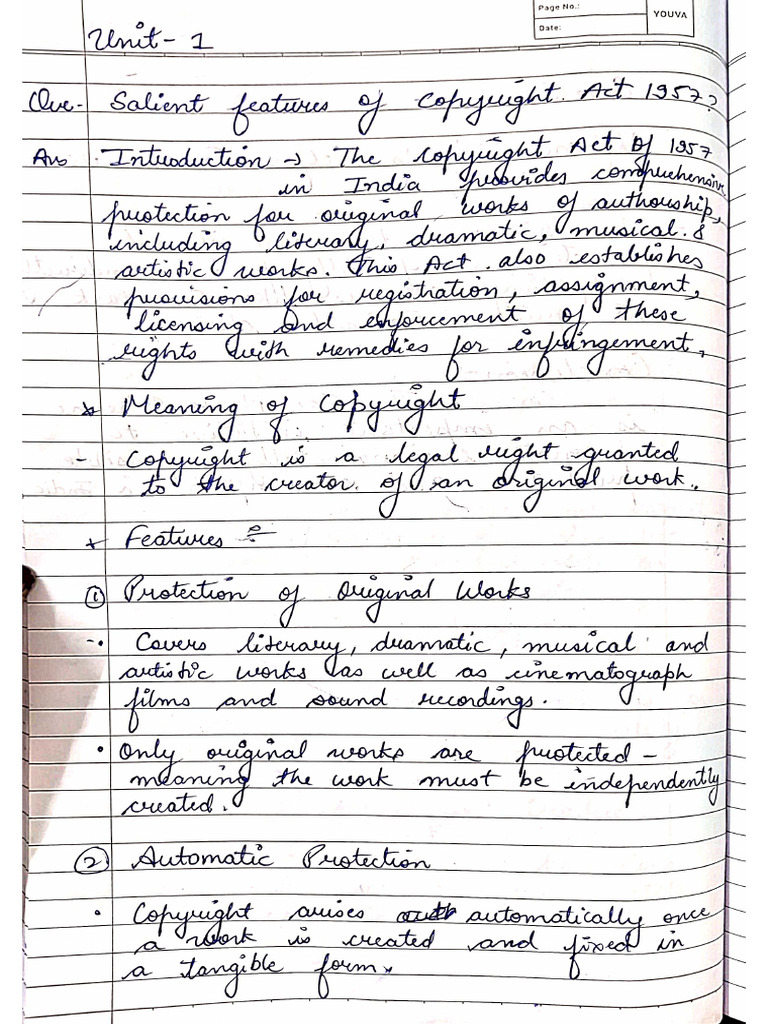 Page No.:
YOUVA
Date:
Unit - 1
Que - Salient features of Copyright Act 1957?
Ans . Introduction → The Copyright Act of 1957
in India provides comprehensive
protection for original works of authorship,
including literary, dramatic, musical &
artistic works. This Act also establishes
provisions for registration, assignment,
licensing and enforcement of these
rights with remedies for infringement.
* Meaning of Copyright
- Copyright is a legal right granted
to the creator of an original work.
* Features :-
① Protection of Original Works
-• Covers literary, dramatic, musical and
artistic works as well as cinematograph
films and sound recordings.
• Only original works are protected -
meaning the work must be independently
created.
② Automatic Protection
• Copyright arises automatically once
a work is created and fixed in
a tangible form.